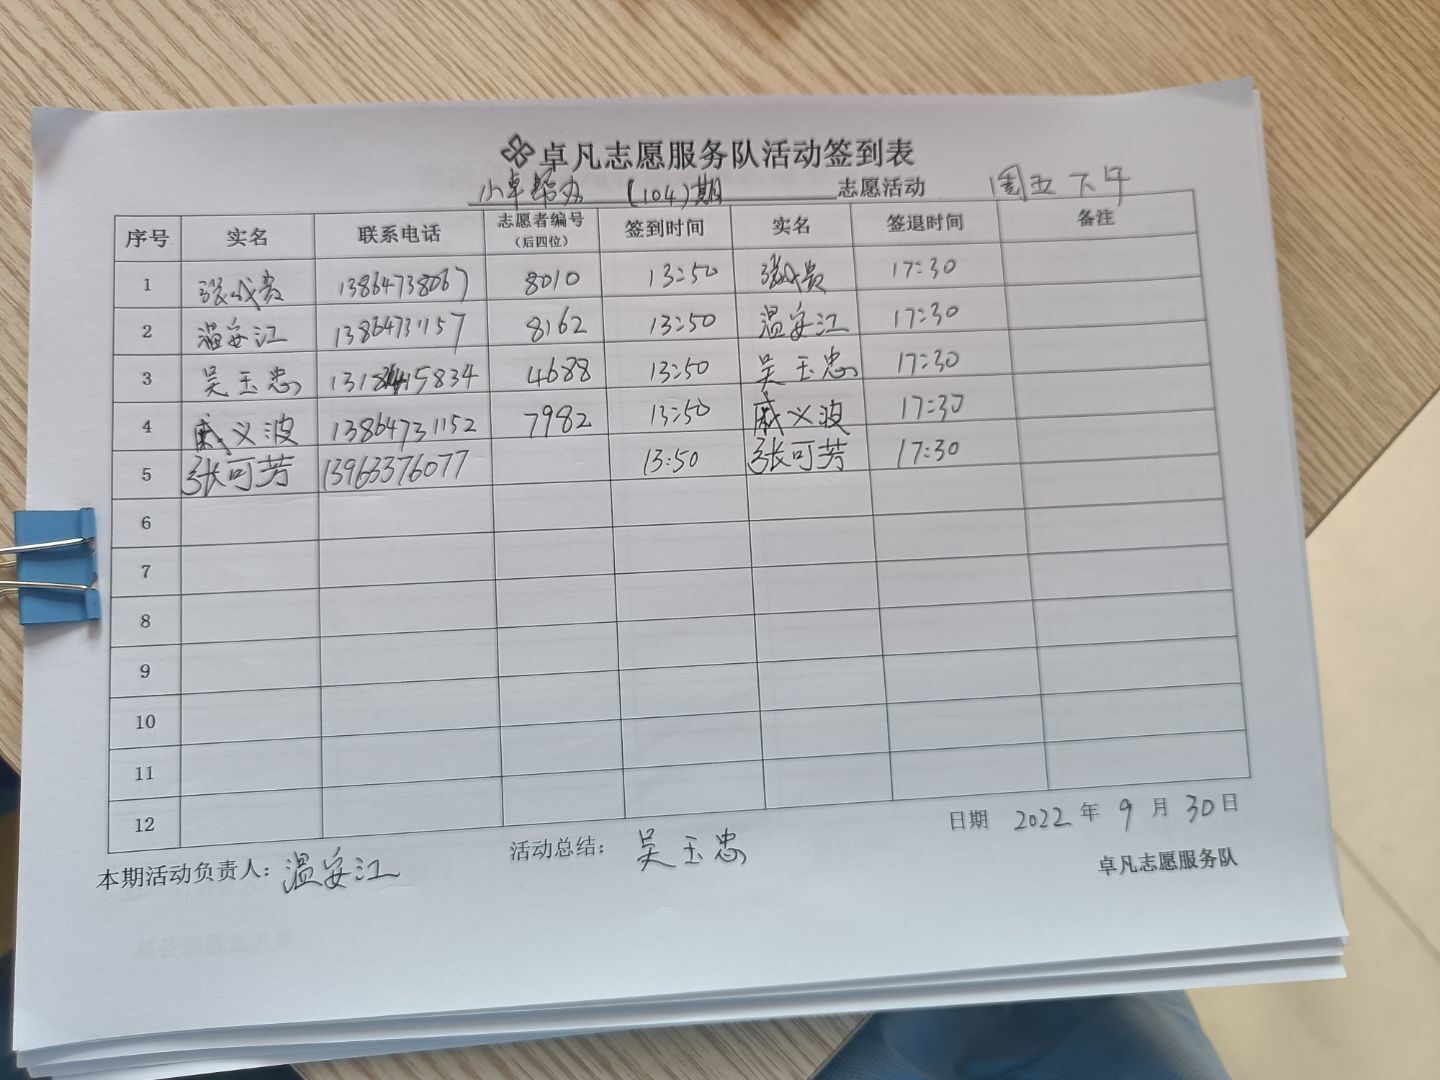 卓凡志愿服务队活动签到表
小卓帮办 (104)期 志愿活动 周五下午
序号 实名 联系电话 志愿者编号(后四位) 签到时间 实名 签退时间 备注
1 张成贵 13864738067 8010 13:50 张成贵 17:30
2 温安江 13864731157 8162 13:50 温安江 17:30
3 吴玉忠 4688 13:50 吴玉忠 17:30
4 戚义波 13864731152 7982 13:50 戚义波 17:30
5 张可芳 13963376077 13:50 张可芳 17:30
6
7
8
9
10
11
12
日期 2022年9月30日
本期活动负责人:温安江 活动总结: 吴玉忠
卓凡志愿服务队